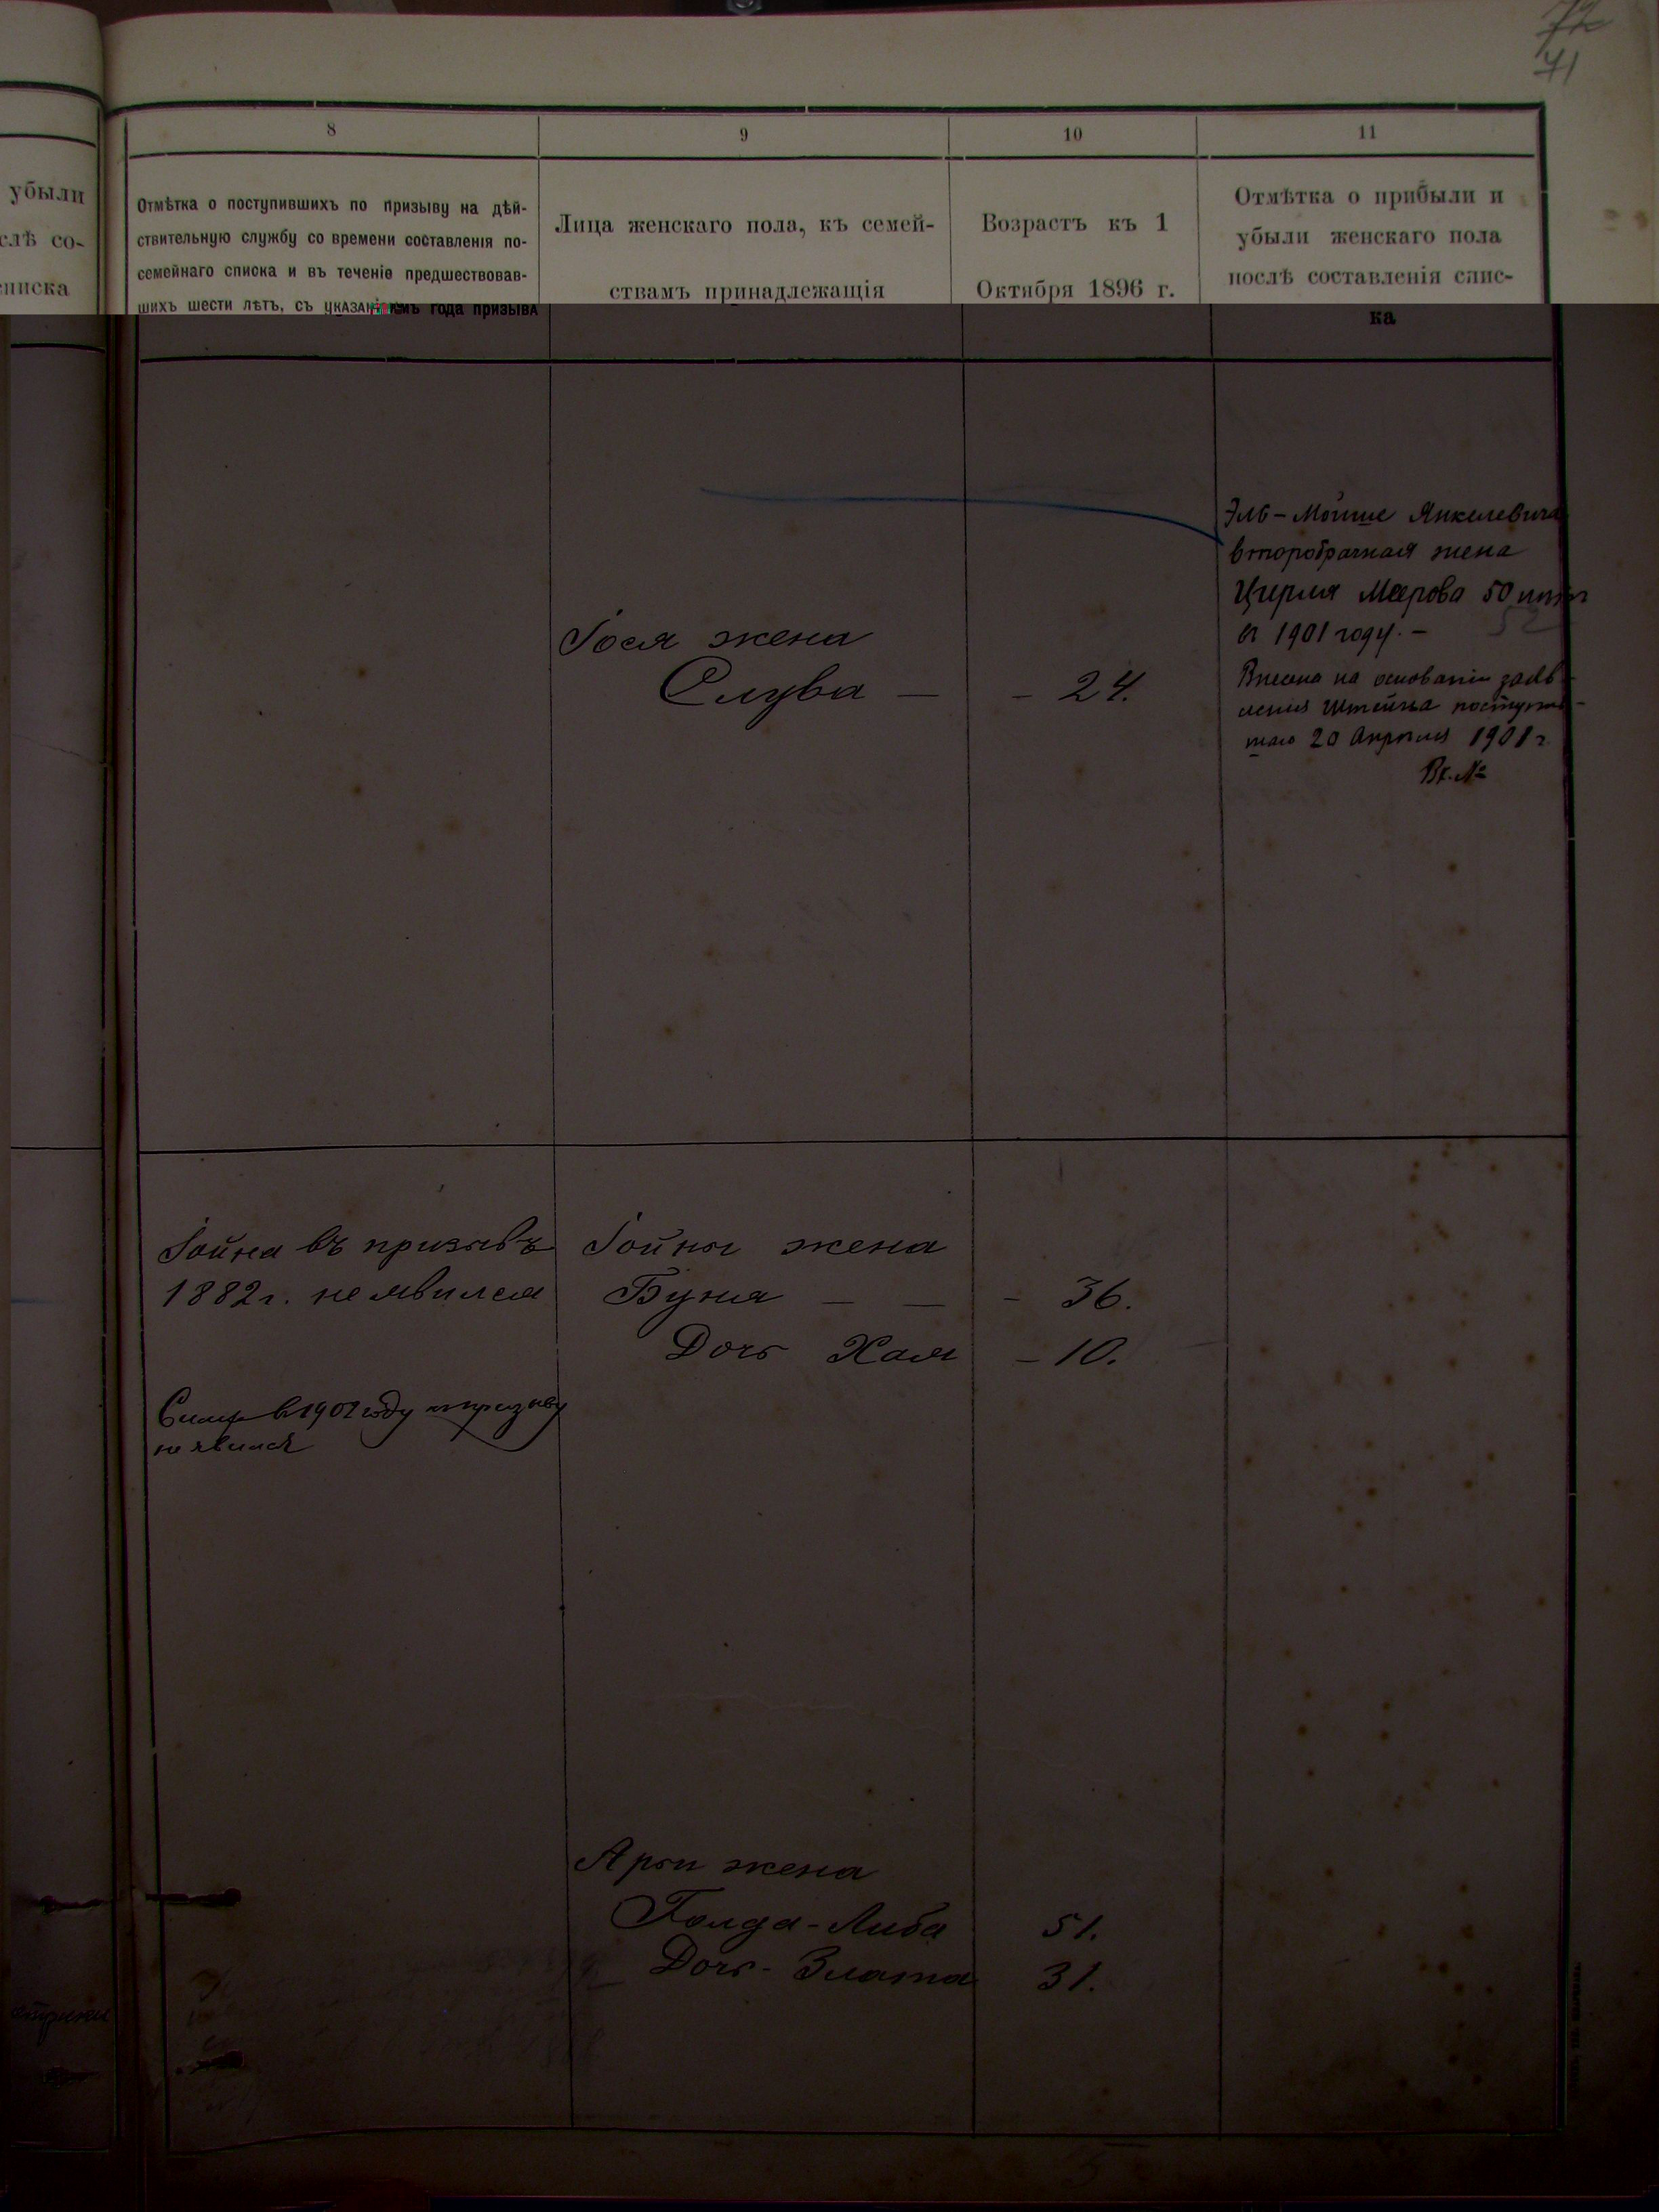 72
71
8
9
10
11
убыли
слѣ со-
списка
Отмѣтка о поступившихъ по призыву на дѣй-
ствительную службу со времени составленія по-
семейнаго списка и въ теченіе предшествовав-
шихъ шести лѣтъ, съ указаніемъ года призыва
Лица женскаго пола, къ семей-
ствамъ принадлежащія
Возрастъ къ 1
Октября 1896 г.
Отмѣтка о прибыли и
убыли женскаго пола
послѣ составленія спис-
ка
Эль-Мойше Янкелевича
второбрачная жена
Цирля Меерова 50 лѣтъ
въ 1901 году. -
52
Внесена на основаніи заяв-
ленія Штейна поступив-
шаго 20 Апрѣля 1901 г.
Вх. №
Іося жена
Слува — - 24.
Іойна въ призывъ
1882 г. не явился
въ 1902 году къ призыву
не явился
Іойны жена
Буня — — - 36.
Дочь Хая - 10.
Арон жена
Голда-Либа 51.
Дочь - Злата 31.